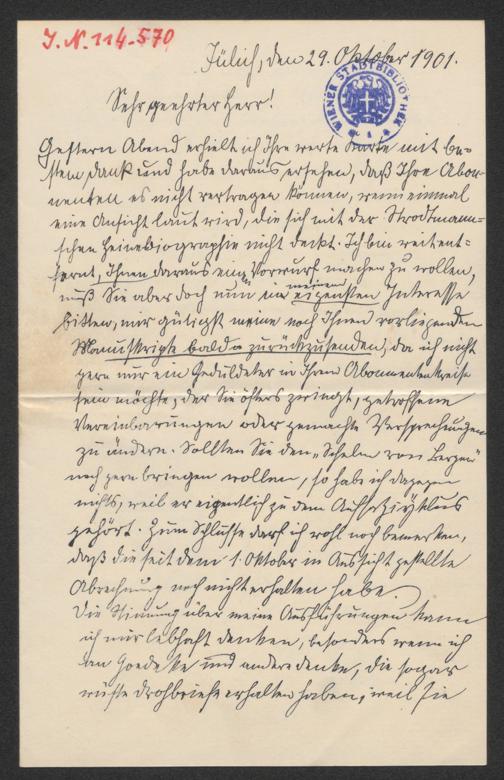 J. N. 114.570
Jülich, den 29. Oktober 1901.
WIENER STADTBIBLIOTHEK
Sehr geehrter Herr!
Gestern Abend erhielt ich Ihre werte Karte mit be-
stem Dank und habe daraus ersehen, daß Ihre Abon-
nenten es nicht vertragen können, wenn einmal
eine Ansicht laut wird, die sich mit der Strodtmann-
schen Heinebiographie nicht deckt. Ich bin weit ent-
fernt, Ihnen daraus einen Vorwurf machen zu wollen,
muß Sie aber doch nun im meinem eigensten Interesse
bitten, mir gütigst meine noch Ihnen vorliegenden
Manuskripte bald zurückzusenden, da ich nicht
gern nur ein Geduldeter in Ihrem Abonnentenkreise
sein möchte, der Sie öfters zwingt, getroffene
Vereinbarungen oder gemachte Versprechungen
zu ändern. Sollten Sie den "Schelm von Bergen"
noch gern bringen wollen, so hab ich dagegen
nichts, weil er eigentlich zu dem Aufsatzzyklus
gehört. Zum Schlusse darf ich wohl noch bemerken,
daß die seit dem 1. Oktober in Aussicht gestellte
Abrechnung noch nicht erhalten habe.
Die Stimmung über meine Ausführungen kann
ich mir lebhaft denken, besonders wenn ich
an Goedeke und andere denke, die sogar
wüste Drohbriefe erhalten haben, weil sie